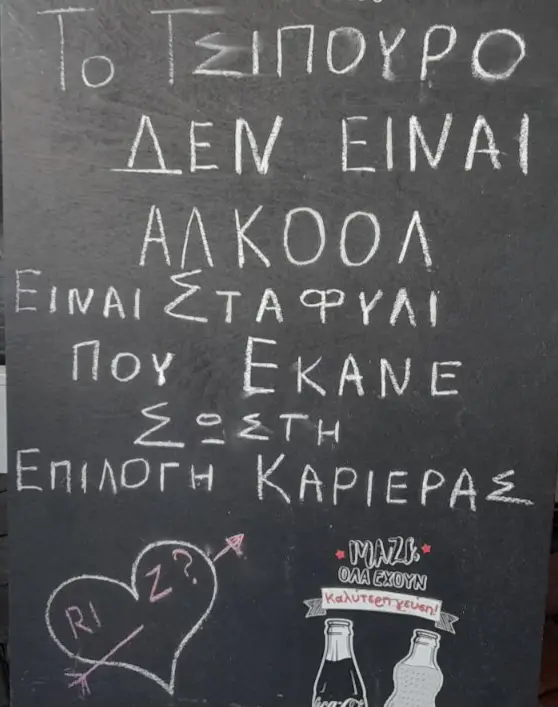 Το ΤΣΙΠΟΥΡΟ
ΔΕΝ ΕΙΝΑΙ
ΑΛΚΟΟΛ
ΕΙΝΑΙ ΣΤΑΦΥΛΙ
ΠΟΥ ΕΚΑΝΕ
ΣΩΣΤΗ
ΕΠΙΛΟΓΗ ΚΑΡΙΕΡΑΣ
RI Z?
ΜΑΖΙ
ΟΛΑ ΕΧΟΥΝ
Καλύτερη γεύση!